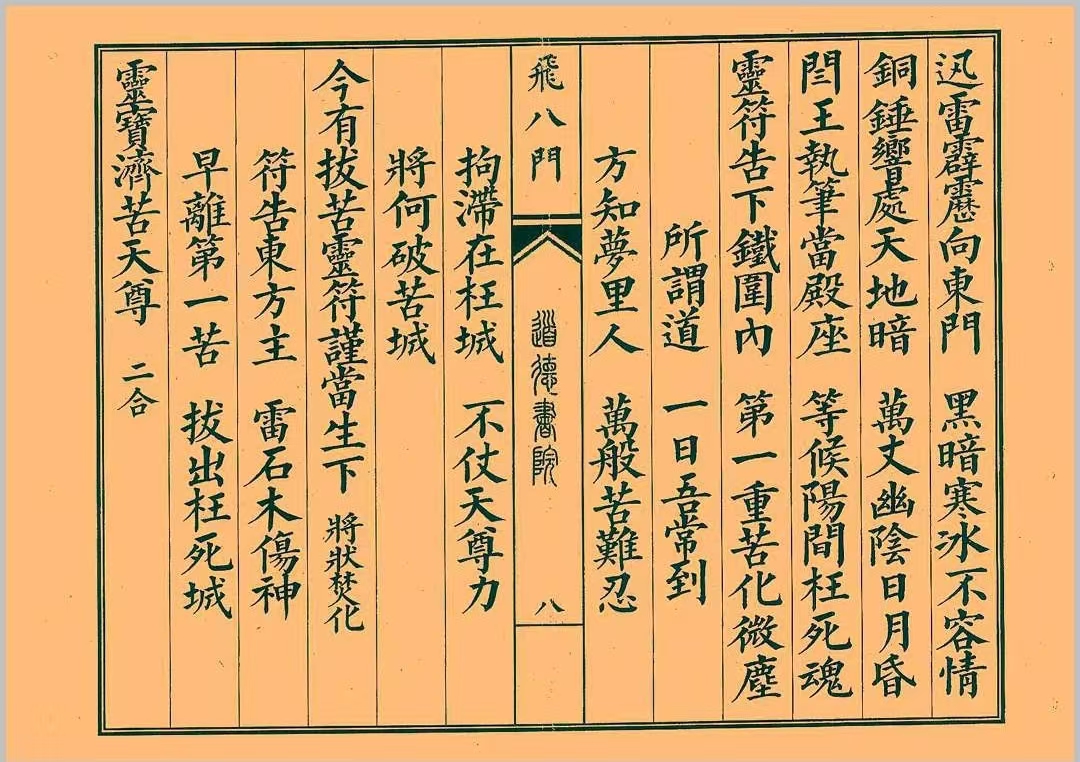 迅雷霹靂向東門　黑暗寒冰不容情
銅錘響處天地暗　萬丈幽陰日月昏
閆王執筆當殿座　等候陽間枉死魂
靈符告下鐵圍內　第一重苦化微塵
所謂道　一日吾常到
方知夢里人　萬般苦難忍
飛八門
道德書院
八
拘滯在枉城　不仗天尊力
將何破苦城
今有拔苦靈符謹當生下　將狀焚化
符告東方主　雷石木傷神
早離第一苦　拔出枉死城
靈寶濟苦天尊　二合